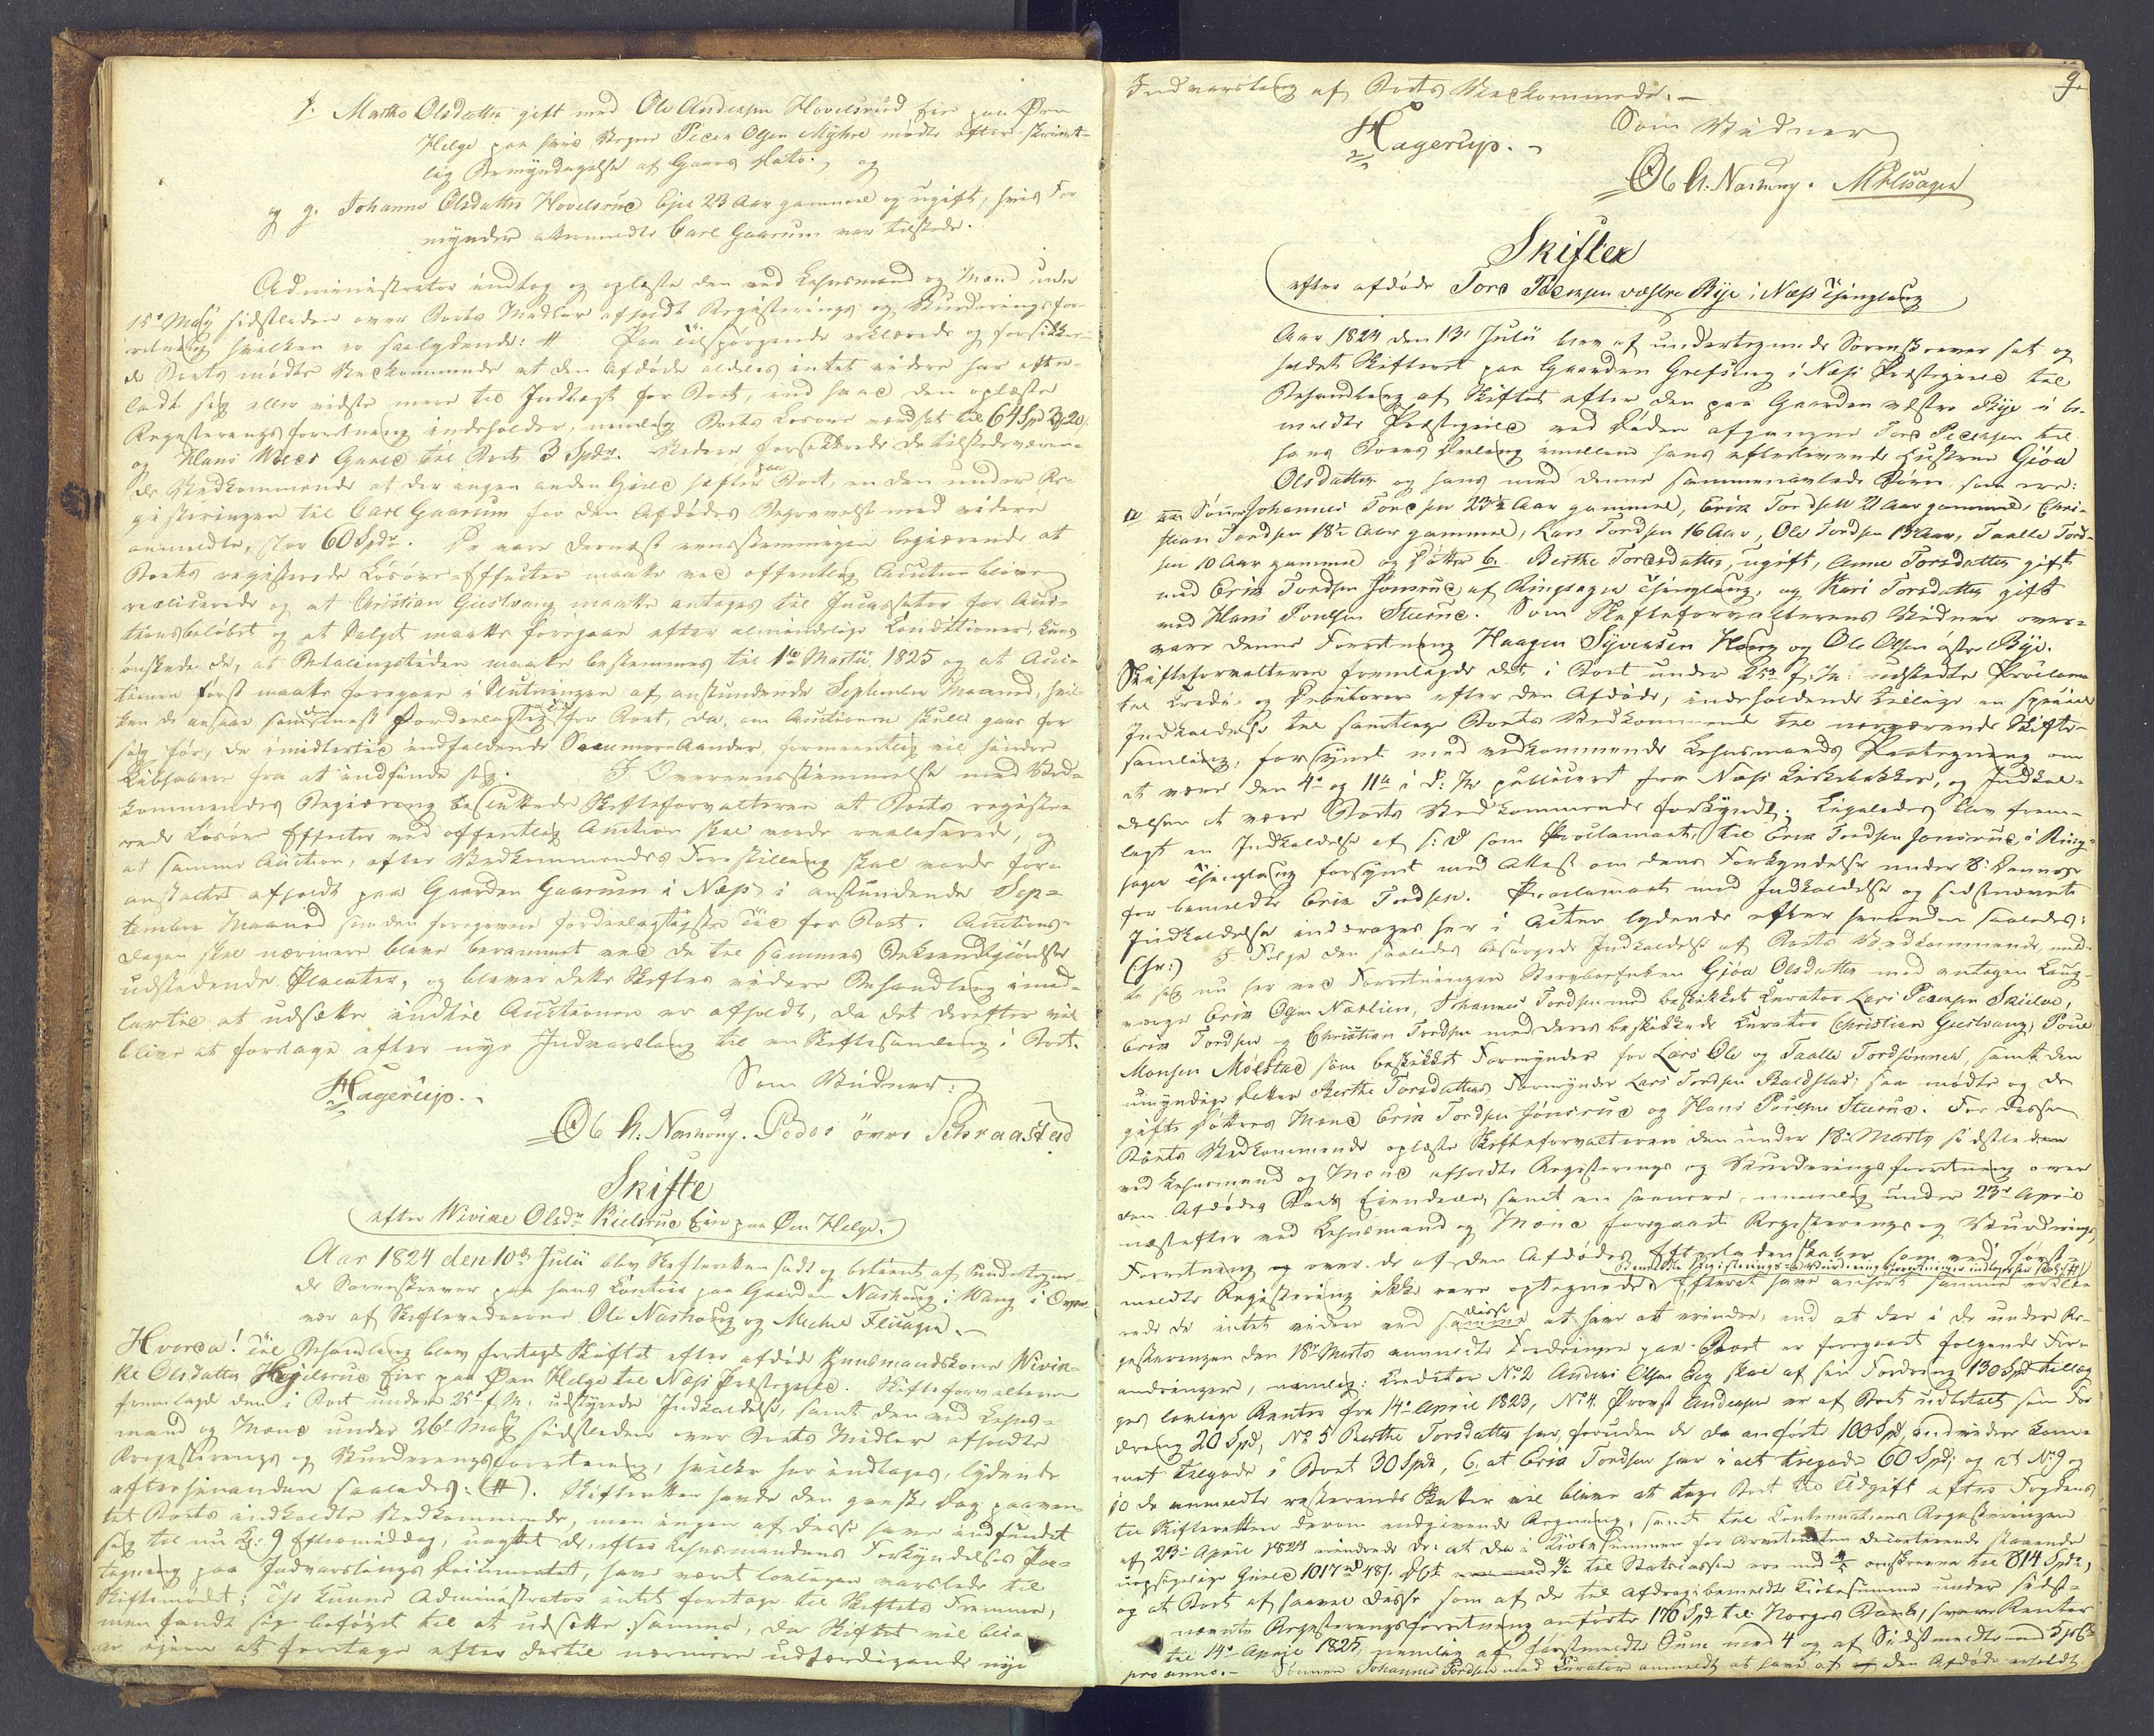 f. Marthe Olsdatter gift med Ole Andersen Hovelsrud Eie paa Øen
Helge paa hvis Vegne Peder Olsen Myhre mødte efter skrivt-
lig Bemyndigelse af Gaars Dato., og
og g. Johanne Olsdatter Hovelsrud Eje 23 Aar gammel og ugift, hvis For
mynder Carl Gaarum var tilstede.
Administrator indtog og oplæste den ved Lehnsmand og Mænd under
15de May sidstleden over Boets Midler afholdt Registerings og Vurderingsfor-
retning hvilken er saalydende: # Paa Tilspørgende erklærede og forsikkre-
de Boets mødte Vedkommende at den Afdøde aldeles intet videre har efter-
ladt sig eller vidste mere til Indtægt for Boet, end hvad den oplæste
Registeringsforretning indeholder, nemlig Boets Løsøre ansat til 64 Spd 3 20
og Hans Gæld til Boet 3 Spdr. Videre forsikkrede de tilstedeværen-
de Vedkommende at der ingen anden Gield hefter paa Boet, en den under Re-
gisteringen til Carl Gaarum for den Afdødes Begravelse med videre
anmeldte, stor 60 Spdr. De vare dernæst eensstemmigen begiærende at
Boets registerede Løsøre-Effecter maatte ved offentlig Auction blive
realiserede og at Christian Gieslvang maatte antages til Incassator for Auc-
tionsbeløbet og at Salget maatte foregaae efter almindelige Conditioner, kuns
ønskede de, at Betalingstiden maatte bestemmes til 1te Martii 1825 og at Auc-
tionen først maatte foregaae i Slutningen af anstundende September Maaned, hvil-
ken de ansaae som den mest fordeelagtig Tid for Boet, da, om Auctionen skulle gaae for
sig før, de imidlertid indfaldende Sommer-Aander, formeentlig vil hindre
Liebhabere fra at indfinde sig. I Overeensstemmelse med Ved-
kommendes Begiæring besluttede Skifteforvalteren at Boets registre-
rede Løsøre Effecter ved offentlig Auction skal vorde realiserede, og
at samme Auction, efter Vedkommendes Forestilling skal vorde for-
anstaltet afholdt paa Gaarden Gaarum i Næss i anstundende Sep-
tember Maaned som den foregivne fordeelagtigste Tid for Boet. Auctions-
dagen skal nærmere blive berammet ved de til sammes Bekiendtgiørelse
udstedende Placater, og bliver dette Skiftes videre Behandling imid-
lertid at udsætte indtil Auctionen er afholdt, da det derefter vil
blive at foretage efter nye Indvarsling til en Skiftesamling i Boet.
Hagerup.
Som Vidner:
Ole A. Nashoug. Peder øvre Schraastad
Skifte
efter Wivike Olsdr Eie paa Øen Helge.
Aar 1824 den 10de Julii blev Skifteretten sadt og betient af undertegne-
de Sorenskriver paa hans Contoir paa Gaarden Nashoug i Wang i Overvæ-
rer af Skiftevidnerne Ole Nashoug og Michel Flisagen.
Hvorda! Til Behandling blev foretaget Skiftet efter afdøde Huusmandskone Wivi-
ke Olsdatter Eie paa Øen Helge til Næss Præstegield. Skifteforvalteren
fremlagde den i Boet under 25de f. M. udstyrede Indkaldelse, samt den ved Lehns-
mand og Mænd under 26de May sidstleden over Boets Midler afholdte
Registerings og Vurderingsforretning, hvilke her indtages, lydende
efter hinanden saaledes: (#). Skifteretten havde den ganske Dag paaven-
tet Boets indkaldte Vedkommende, men ingen af disse have indfundet
sig til nu Kl: 9 Eftermiddag, uagtet de, efter Lehnsmandens Forkyndelses Paa-
tegning paa Indvarslings Documentet, have været lovligen varslede til
Skiftemødet; Thi kunne Administrator intet foretage til Skiftets Fremme,
men fandt sig beføiet til at udsætte samme, da Skiftet vil bli-
ve igien at foretage efter dertil nærmere udfærdigende nye
9.
Indvarsling af Boets Vedkommende.
Hagerup.
Som Vidner
Ole A. Nashoug. M Flisagen
Skifter
efter afdøde Tord Pedersen vestre Bye i Næss Thinglaug
Aar 1824 den 13de Julii blev af undertegnede Sorenskriver sat og
holdet Skifteret paa Gaarden Grefsing i Næss Præstegield til
Behandling af Skiftet efter den paa Gaarden vestre Bye i be-
meldte Præstegield ved Døden afgangne Tord Pedersen til
hans Boes Deling imellem hans efterlevende Hustrue Giøa
Olsdatter og hans med denne sammenavlede Børn som ere:
a Sønner Johannes Tordsen 23 1/2 Aar gammel, Erik Tordsen 21 Aar gammel, Chri-
stian Tordsen 18 1/2 Aar gammel, Lars Tordsen 16 Aar, Ole Tordsen 13 Aar, Taalle Tord-
sen 10 Aar gammel og Døttre b. Berthe Tordsdatter, ugift, Anne Tordsdatter gift
med Erik Tordsen Jønsrud af Ringsager Thinglaug, og Kari Tordsdatter gift
med Hans Poulsen Stusrud. Som Skifteforvalterens Vidner over-
vare denne Forretning Haagen Syversen Hoeg og Ole Olsen østre Bye.
Skifteforvalteren fremlagde det i Boet under f. M. udstedte Proclama
til Credi- og Debitorer efter den Afdøde, indeholdende tillige en speciel
Indkaldelse til samtlige Boets Vedkommende til nærværende Skifte-
samling, forsynet med vedkommende Lehnsmands Paategning om
at være den 4de og 11te i d: M publiceret fra Næss Kirkebakke, og Indkal-
delsen at være Boets Vedkommende forkyndt; Ligeledes blev frem-
lagt en Indkaldelse af s: D som Proclamaet, til Erik Tordsen Jønsrud i Ring-
sager Thinglaug forsynet med Attest om dens Forkyndelse under 8de dennes
for bemeldte Erik Tordsen. Proclamaet med Indkaldelse og sidstnævnte
Indkaldelse inddrages her i Acten lydende efter hinanden saaledes:
I Følge den saaledes besørgede Indkaldelse af Boets Vedkommende, meld-
te sig nu her ved Forretningen Sterboenken Gjøa Olsdatter med antagen Laug-
værge Erik Olsen Næslien, Johannes Tordsen med beskikket Curator Lars Pedersen Skielve,
Erik Tordsen og Christian Tordsen med deres beskikkede Curator Christian Gieslvang, Poul
Monsen Mølstad som beskikket Formynder for Lars Ole og Taalle Tordsønner, samt den
umyndige Datter Berthe Tordsdatters Formynder Lars Tordsen Baldstad; saa mødte og de
gifte Døttres Mænd Erik Tordsen Jønsrud og Hans Poulsen Stusrud. For disse
Boets Vedkommende oplæste Skifteforvalteren den under 18de Marty sidstleden
ved Lehnsmand og Mænd afholdte Registerings og Vurderingsforretning over
den Afdødes Boets Eiendele, samt en senere, nemlig under 23de April
næstefter ved Lehnsmand og Mænd foregaaet Registerings og Vurderings
Forretning og over de af den Afdødes Efterladenskaber som ved først-
Bemeldte Registerings- og Vurderingsforretninger indtages her
meldte Registering ikke vare optegnede. Efterat have anhørt samme erklæ-
rede de intet videre ved disse at have at erindre, end at der i de under Re-
gisteringen den 18de Marts anmeldte Fordringer paa Boet er foregaaet følgende For-
andringer, nemlig: Creditor No 2 Anders Olsen Bye skal af sin Fordring 130 Spd tillæg-
ges lovlige Renter fra 14de April 1823, No 4. Provst Andersen er af Boet udbetalt sin For
dring 20 Spd, No 5 Berthe Tordsdatter har, foruden de da anførte 100 Spd, endvidere kom-
met tilgode i Boet 30 Spd, 6. at Erik Tordsen har i alt tilgode 60 Spd; og at No 9 og
10 de anmeldte resterende Skatter vil blive at tage Boet til Udgift efter Fogdens
til Skifteretten derom indgivende Regning, samt til Continuations Registeringen
af 23de April 1824 erindrede de: at den i Kiøbesummen for
uopsigelige Gield 1017 48 s. til Statscassen ere med omskreven til 814 Spd,
og at Boet af saavel disse som af de til Afdrag i bemeldte Kiøbesumme under sidst-
nævnte Registeringsforretning anførte 176 Spd til Norges Bank, svare Renter
til 14de April 1825, nemlig af førstmeldte Sum med 4 og af Sidstmeldte med 5 prC
pro anno.- Sønnen Johannes Tordsen med Curator anmeldt at have af den Afdøde erholdt